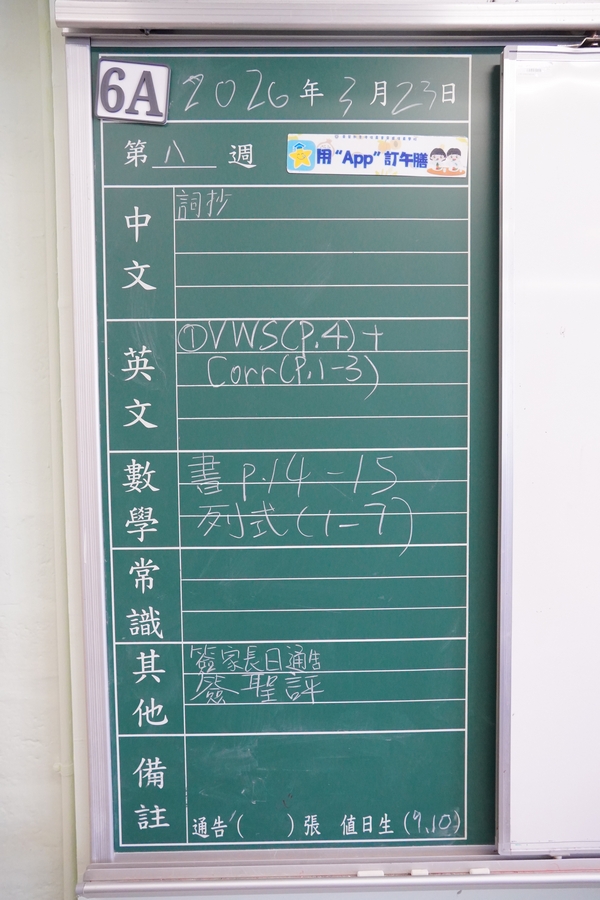 6A 2026年3月23日
第八週
用“App”訂午膳
中文
詞抄
英文
①VWS(P.4)+
Corr(P.1-3)
數學
書 p.14-15
列式(1-7)
常識
其他
簽家長日通告
簽聖評
備註
通告( )張 值日生(9,10)